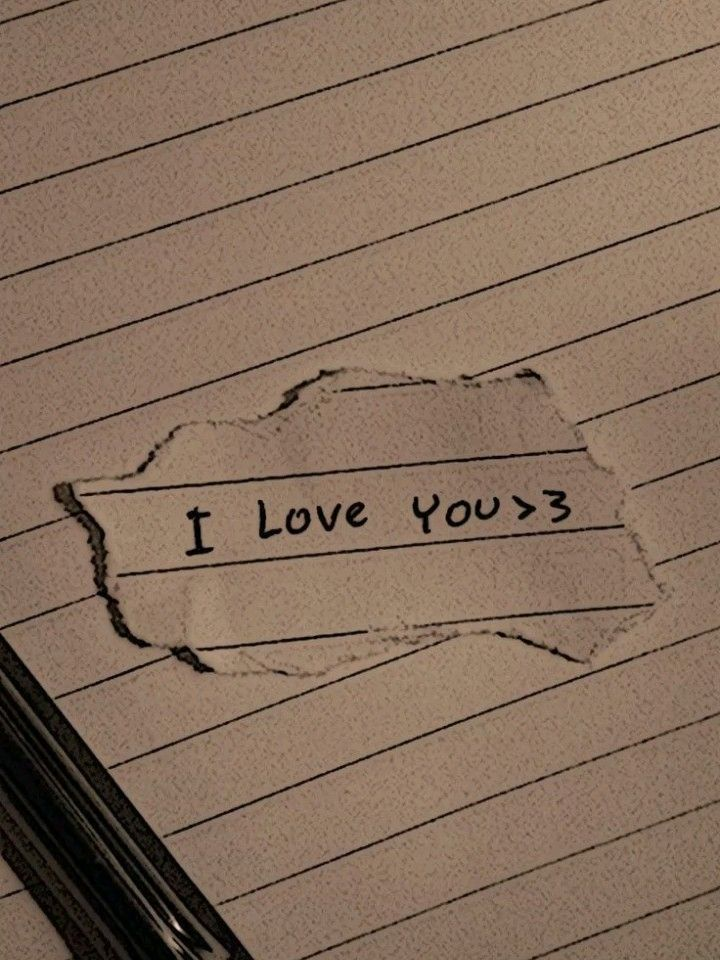 I Love You>3